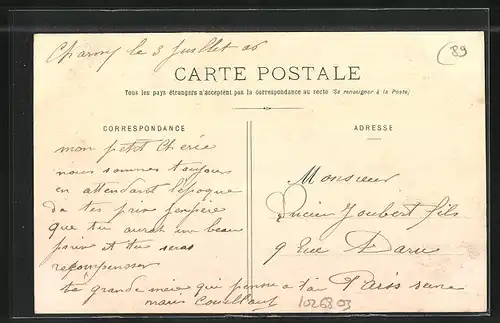 Charny le 3 Juillet 06
(89
CARTE POSTALE
Tous les pays étrangers n'acceptent pas la correspondance au recto (Se renseigner à la Poste)
CORRESPONDANCE
mon petit Chérie
nous sommes toujour
en attendant l'époque
de tes prix j'enpère
que tu aurat un beau
prix et tu seras
recompenser
ta grande mère qui pense a toi
ADRESSE
Monsieur
Lucien Joubert fils
9 Rue Daru
Paris seine
1026803